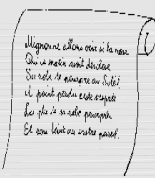 Mignonne allons voir si la rose
Qui ce matin avoit desclose
Sa robe de pourpre au Soleil,
A point perdu ceste vesprée
Les plis de sa robe pourprée
Et son teint au vostre pareil.